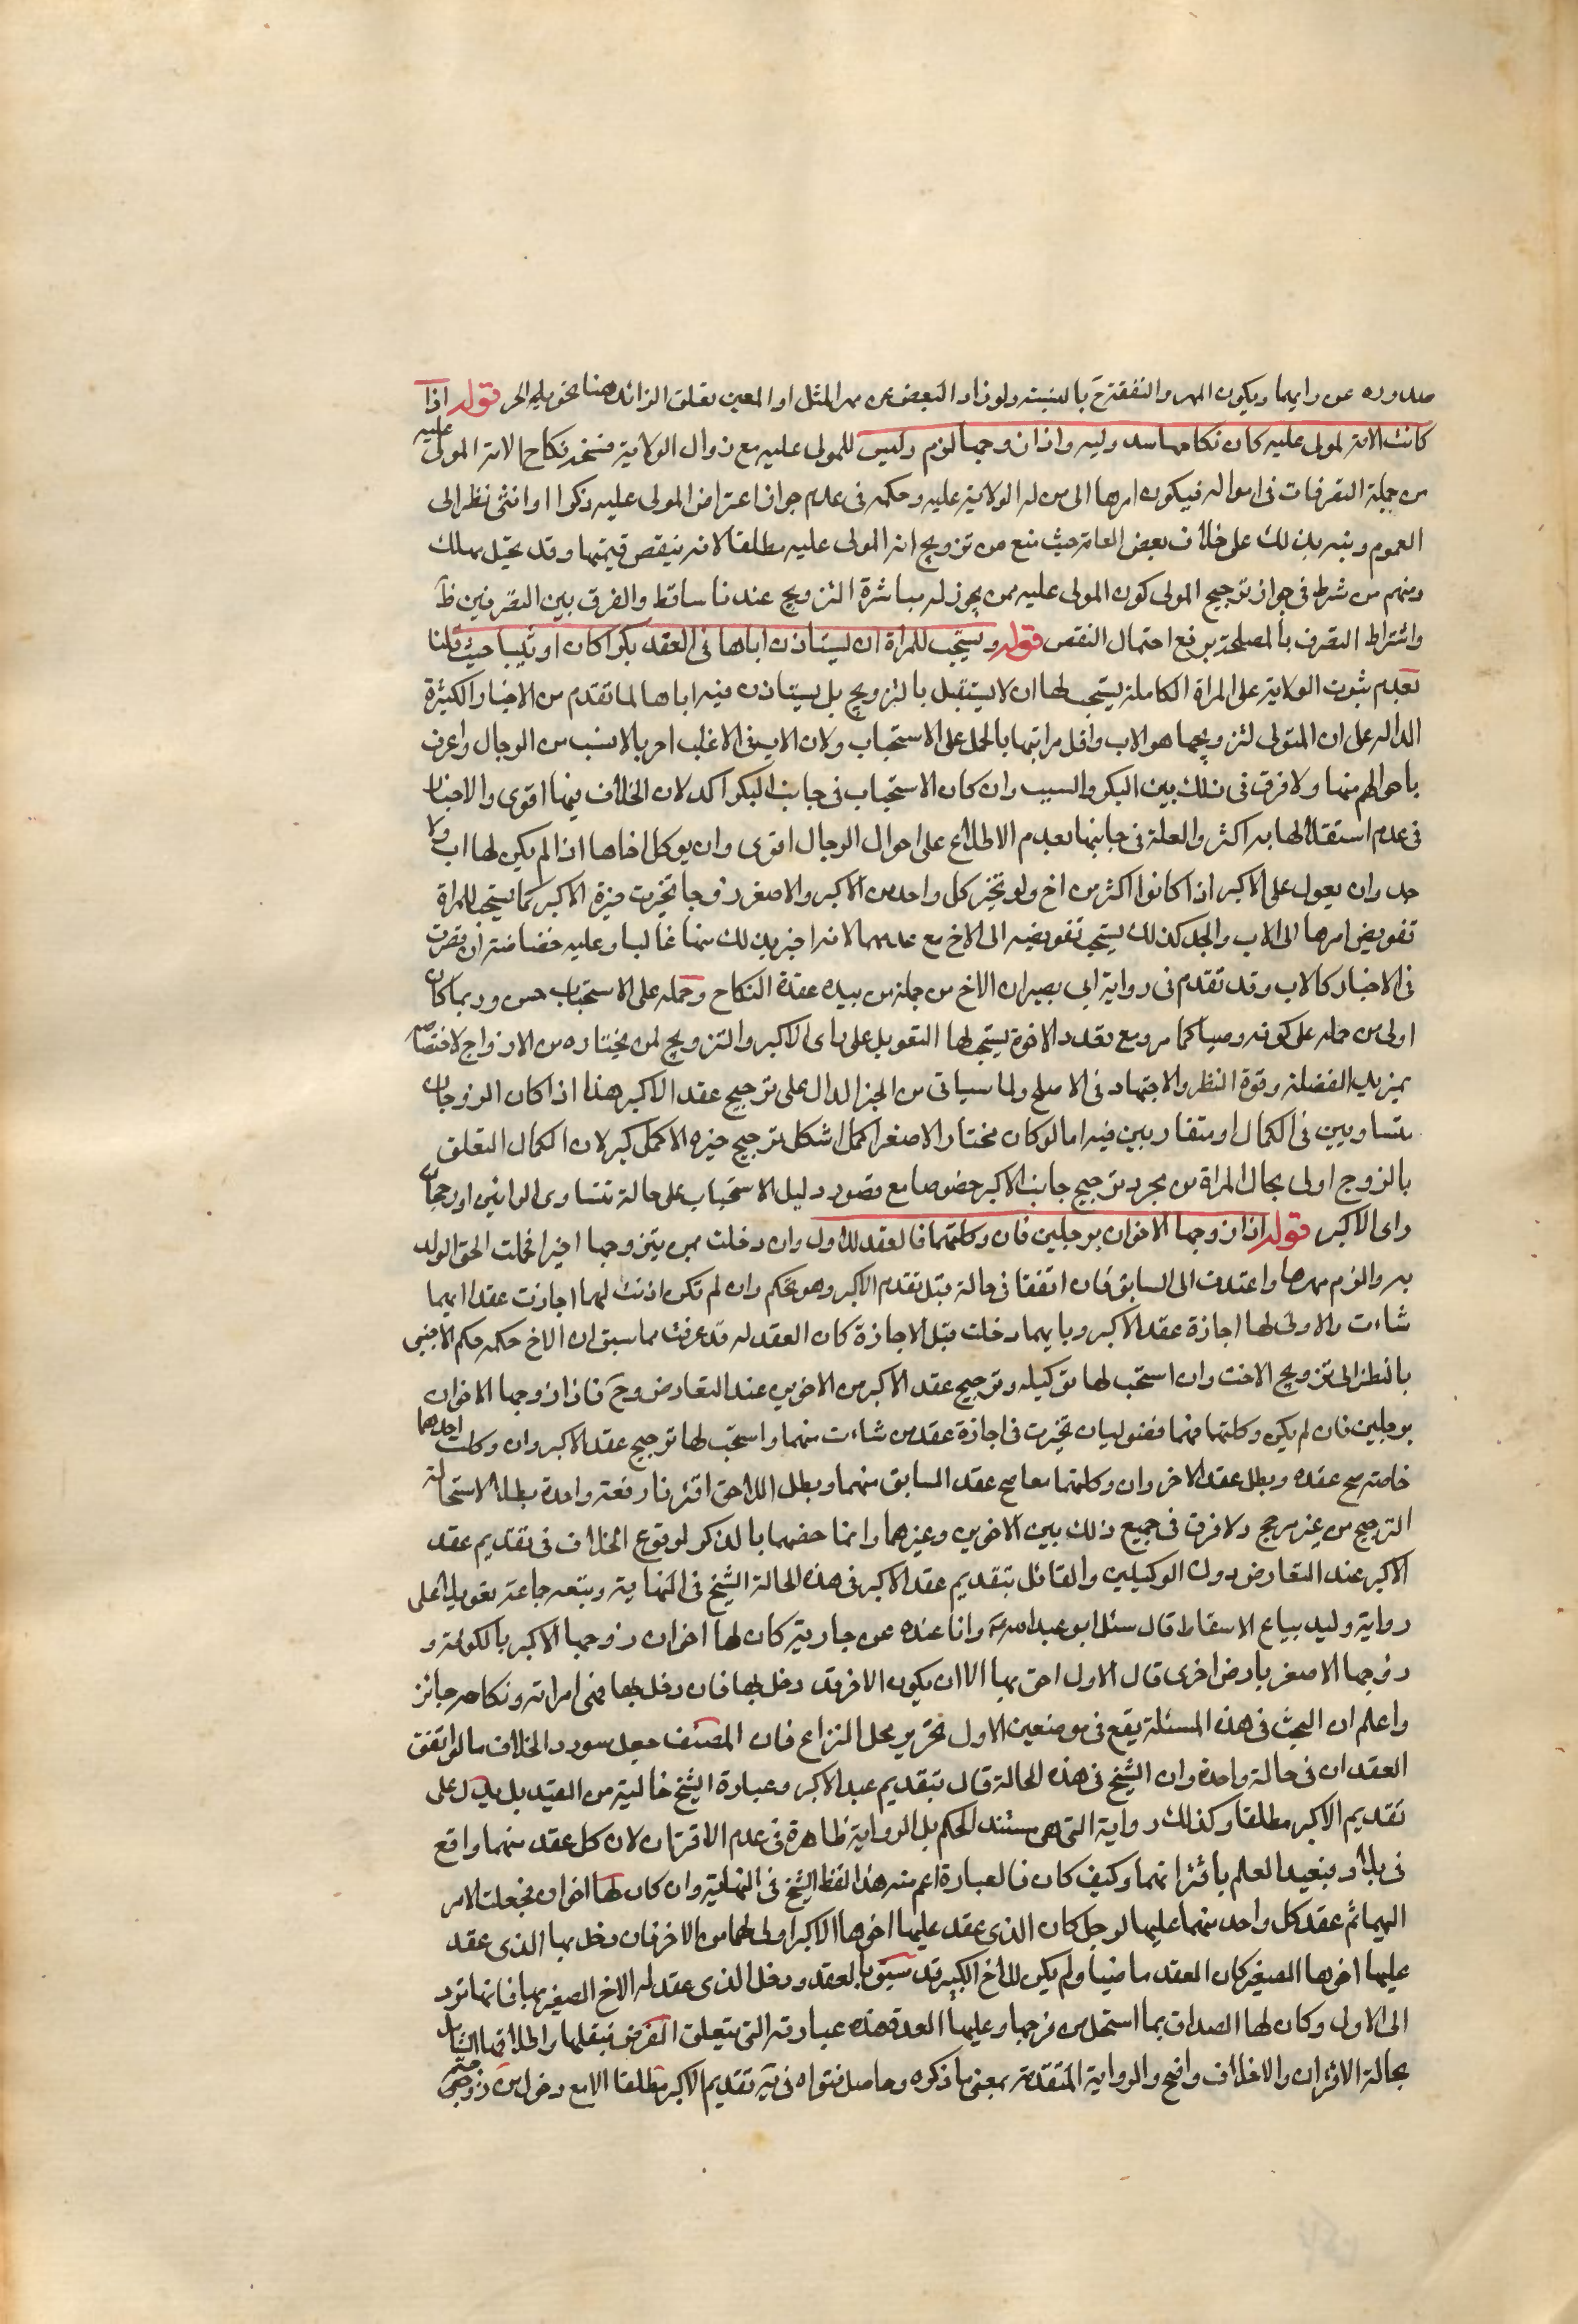 صدوره عن رايهما ويكون المهر والنفقة ح بالنسبة ولو زاد البعض عن مهر المثل او المعين تعلق الزائد هنا بحق المولى الحر قوله اذا
كانت الامة لمولى عليه كان نكاحها بيد وليه واذا زوجها لزم وليس للمولى عليه مع زوال الولاية فسخه نكاح الامة المولى عليه
من جملة التصرفات فى امواله فيكون امرها الى من له الولاية عليه وحكمه فى عدم جواز اعتراض المولى عليه ذكرا او انثى نظر الى
العموم ونبه بذلك على خلاف بعض العامة حيث منع من تزويج امة المولى عليه مطلقا لانه ينقص قيمتها وقد تحبل فتهلك
ومنهم من شرط فى جواز تزويج المولى كون المولى عليه ممن يجوز له مباشرة التزويج عندنا ساقط والفرق بين التصرفين ظ
واشتراط التصرف بالمصلحة يرفع احتمال النقص قوله ويستحب للمراة ان تستاذن اباها فى العقد بكرا كان او ثيبا حيث قلنا
بعدم ثبوت الولاية على المراة الكاملة يستحب لها ان لا يستقبل بالتزويج بل يستاذن فيه اباها لما تقدم من الاخبار الكثيرة
الدالة على ان المتولى لتزويجها هو الاب واقل مراتبها بالحمل على الاستحباب ولان الاب فى الاغلب اخبر بالانسب من الرجال واعرف
باحوالهم منها ولا فرق فى ذلك بين البكر والثيب وان كان الاستحباب فى جانب البكر اكد لان الخلاف فيها اقوى والاخبار
فى عدم استقلالها به اكثر والعلة فى جانبها بعدم الاطلاع على احوال الرجال اقوى وان يوكل اخاها اذا لم يكن لها اب ولا
جد وان يعول على الاكبر اذا كانوا اكثر من اخ ولو تخير كل واحد من الاكبر والاصغر زوجا تخيرت خيرة الاكبر كما يستحب للمراة
تفويض امرها الى الاب والجد كذلك يستحب تفويضه الى الاخ مع عدمهما لانه اخبر بذلك منها غالبا وعليه خضاضة ان قصرت
فى الاختيار كالاب وقد تقدم فى رواية ابى بصير ان الاخ من جملة من بيده عقدة النكاح وحمله على الاستحباب حسن وربما كان
اولى من حمله على كونه وصيا كما مر ومع تعدد الاخوة يستحب لها التعويل على راى الاكبر والتزويج لمن يختاره من الازواج لاختصاصه
بمزيد الفضيلة وقوة النظر والاجتهاد فى الاصلح ولما سياتى من الخبر الدال على ترجيح عقد الاكبر هذا اذا كان الزوجان
متساويين فى الكمال او متقاربين فيه اما لو كان مختار الاصغر اكمل اشكل ترجيح خيرة الاكبر لان الكمال المتعلق
بالزوج اولى بحال المراة من مجرد ترجيح جانب الاكبر خصوصا مع قصور دليل الاستحباب على حالة تتساوى الرايين او رجحان
راى الاكبر قوله اذا زوجها الاخوان برجلين فان وكلتهما فالعقد للاول وان دخلت بمن يتزوجها اخيرا فحملت الحق الولد
به والزم مهرها واعتدت الى السابق فان اتفقا فى حالة قيل تقدم الاكبر وهو تحكم وان لم تكن اذنت لهما اجازت عقد ايهما
شاءت والاولى لها اجازة عقد الاكبر وبايهما دخلت قبل الاجازة كان العقد له قد عرفت مما سبق ان الاخ حكمه حكم الاجنبى
بالنظر الى تزويج الاخت وان استحب لها توكيله وترجيح عقد الاكبر من الاخوين عند التعارض وح فاذا زوجها الاخوان
برجلين فان لم يكن وكلتهما فهما فضوليان تخيرت فى اجازة عقد من شاءت منهما واستحب لها ترجيح عقد الاكبر وان وكلت احدهما
خاصة صح عقده وبطل عقد الاخر وان وكلتهما معا صح عقد السابق منهما وبطل اللاحق اقترنا دفعة واحدة بطلا لاستحالة
الترجيح من غير مرجح ولا فرق فى جميع ذلك بين الاخوين وغيرهما وانما خصهما بالذكر لوقوع الخلاف فى تقديم عقد
الاكبر عند التعارض دون الوكيلين والقائل بتقديم عقد الاكبر فى هذه الحالة الشيخ فى النهاية وتبعه جماعة تعويلا على
رواية وليد بياع الاسقاط قال سئل ابو عبد الله ع وانا عنده عن جارية كان لها اخوان زوجها الاكبر بالكوفة و
زوجها الاصغر بارض اخرى قال الاول احق بها الا ان يكون الاخر قد دخل بها فان دخل بها فهى امراته ونكاحه جائز
واعلم ان البحث فى هذه المسئلة يقع فى موضعين الاول تحرير محل النزاع فان المصنف جعل مورد الخلاف ما لو اتفق
العقدان فى حالة واحدة وان الشيخ فى هذه الحالة قال بتقديم عبد الاكبر وعبارة الشيخ خالية من القيد بل يدل على
تقديم الاكبر مطلقا وكذلك رواية التى هى مستند الحكم بل الرواية ظاهرة فى عدم الاقتران لان كل عقد منهما واقع
فى بلد وبتعيد العلم باقترانهما وكيف كان فالعبارة اعم منه هذا لفظ الشيخ فى النهاية وان كان لها اخوان فجعلت الامر
اليهما ثم عقد كل واحد منهما عليها لرجل كان الذى عقد عليها اخوها الاكبر اولى لها من الاخر فان دخل بها الذى عقد
عليها اخوها الصغير كان العقد ماضيا ولم يكن للاخ الكبير قد سبق بالعقد ودخل الذى عقد له الاخ الصغير بها فانها ترد
الى الاولى وكان لها الصداق بما استحل من فرجها وعليها العدة هذه عبارته التى يتعلق الغرض بنقلها واطلاقها الشامل
بحالة الاقتران والاختلاف واضح والرواية المتقدمة بمعنى ما ذكره وحاصل فتواه فى ية تقديم الاكبر مطلقا الا مع دخول من زوجه